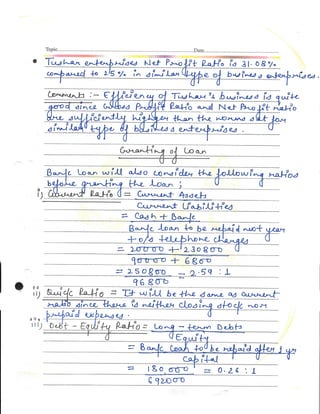 Topic Date
• Tushar enterprises Net Profit Ratio is 31.08%
compared to 25% in similar type of business enterprises.
Comments :- Efficiency of Tushar's business is quite
good since Gross Profit Ratio and Net Profit ratio
are sufficiently higher than the norms set for
similar type of business enterprises.
Granting of Loan
Bank Loan will also consider the following ratios
before granting the loan ;
i) Current Ratio = Current Assets
Current Liabilities
= Cash + Bank
Bank loan to be repaid next year
+ o/s telephone charges
= 20000 + 230800
90000 + 6800
= 250800 = 2.59 : 1
96800
ii) Quick Ratio = It will be the same as current
ratio since there is neither closing stock nor
prepaid expenses.
iii) Debt - Equity Ratio = Long - term Debts
Equity
= Bank Loan to be repaid after 1 yr
Capital
= 180,000 = 0.26 : 1
692000